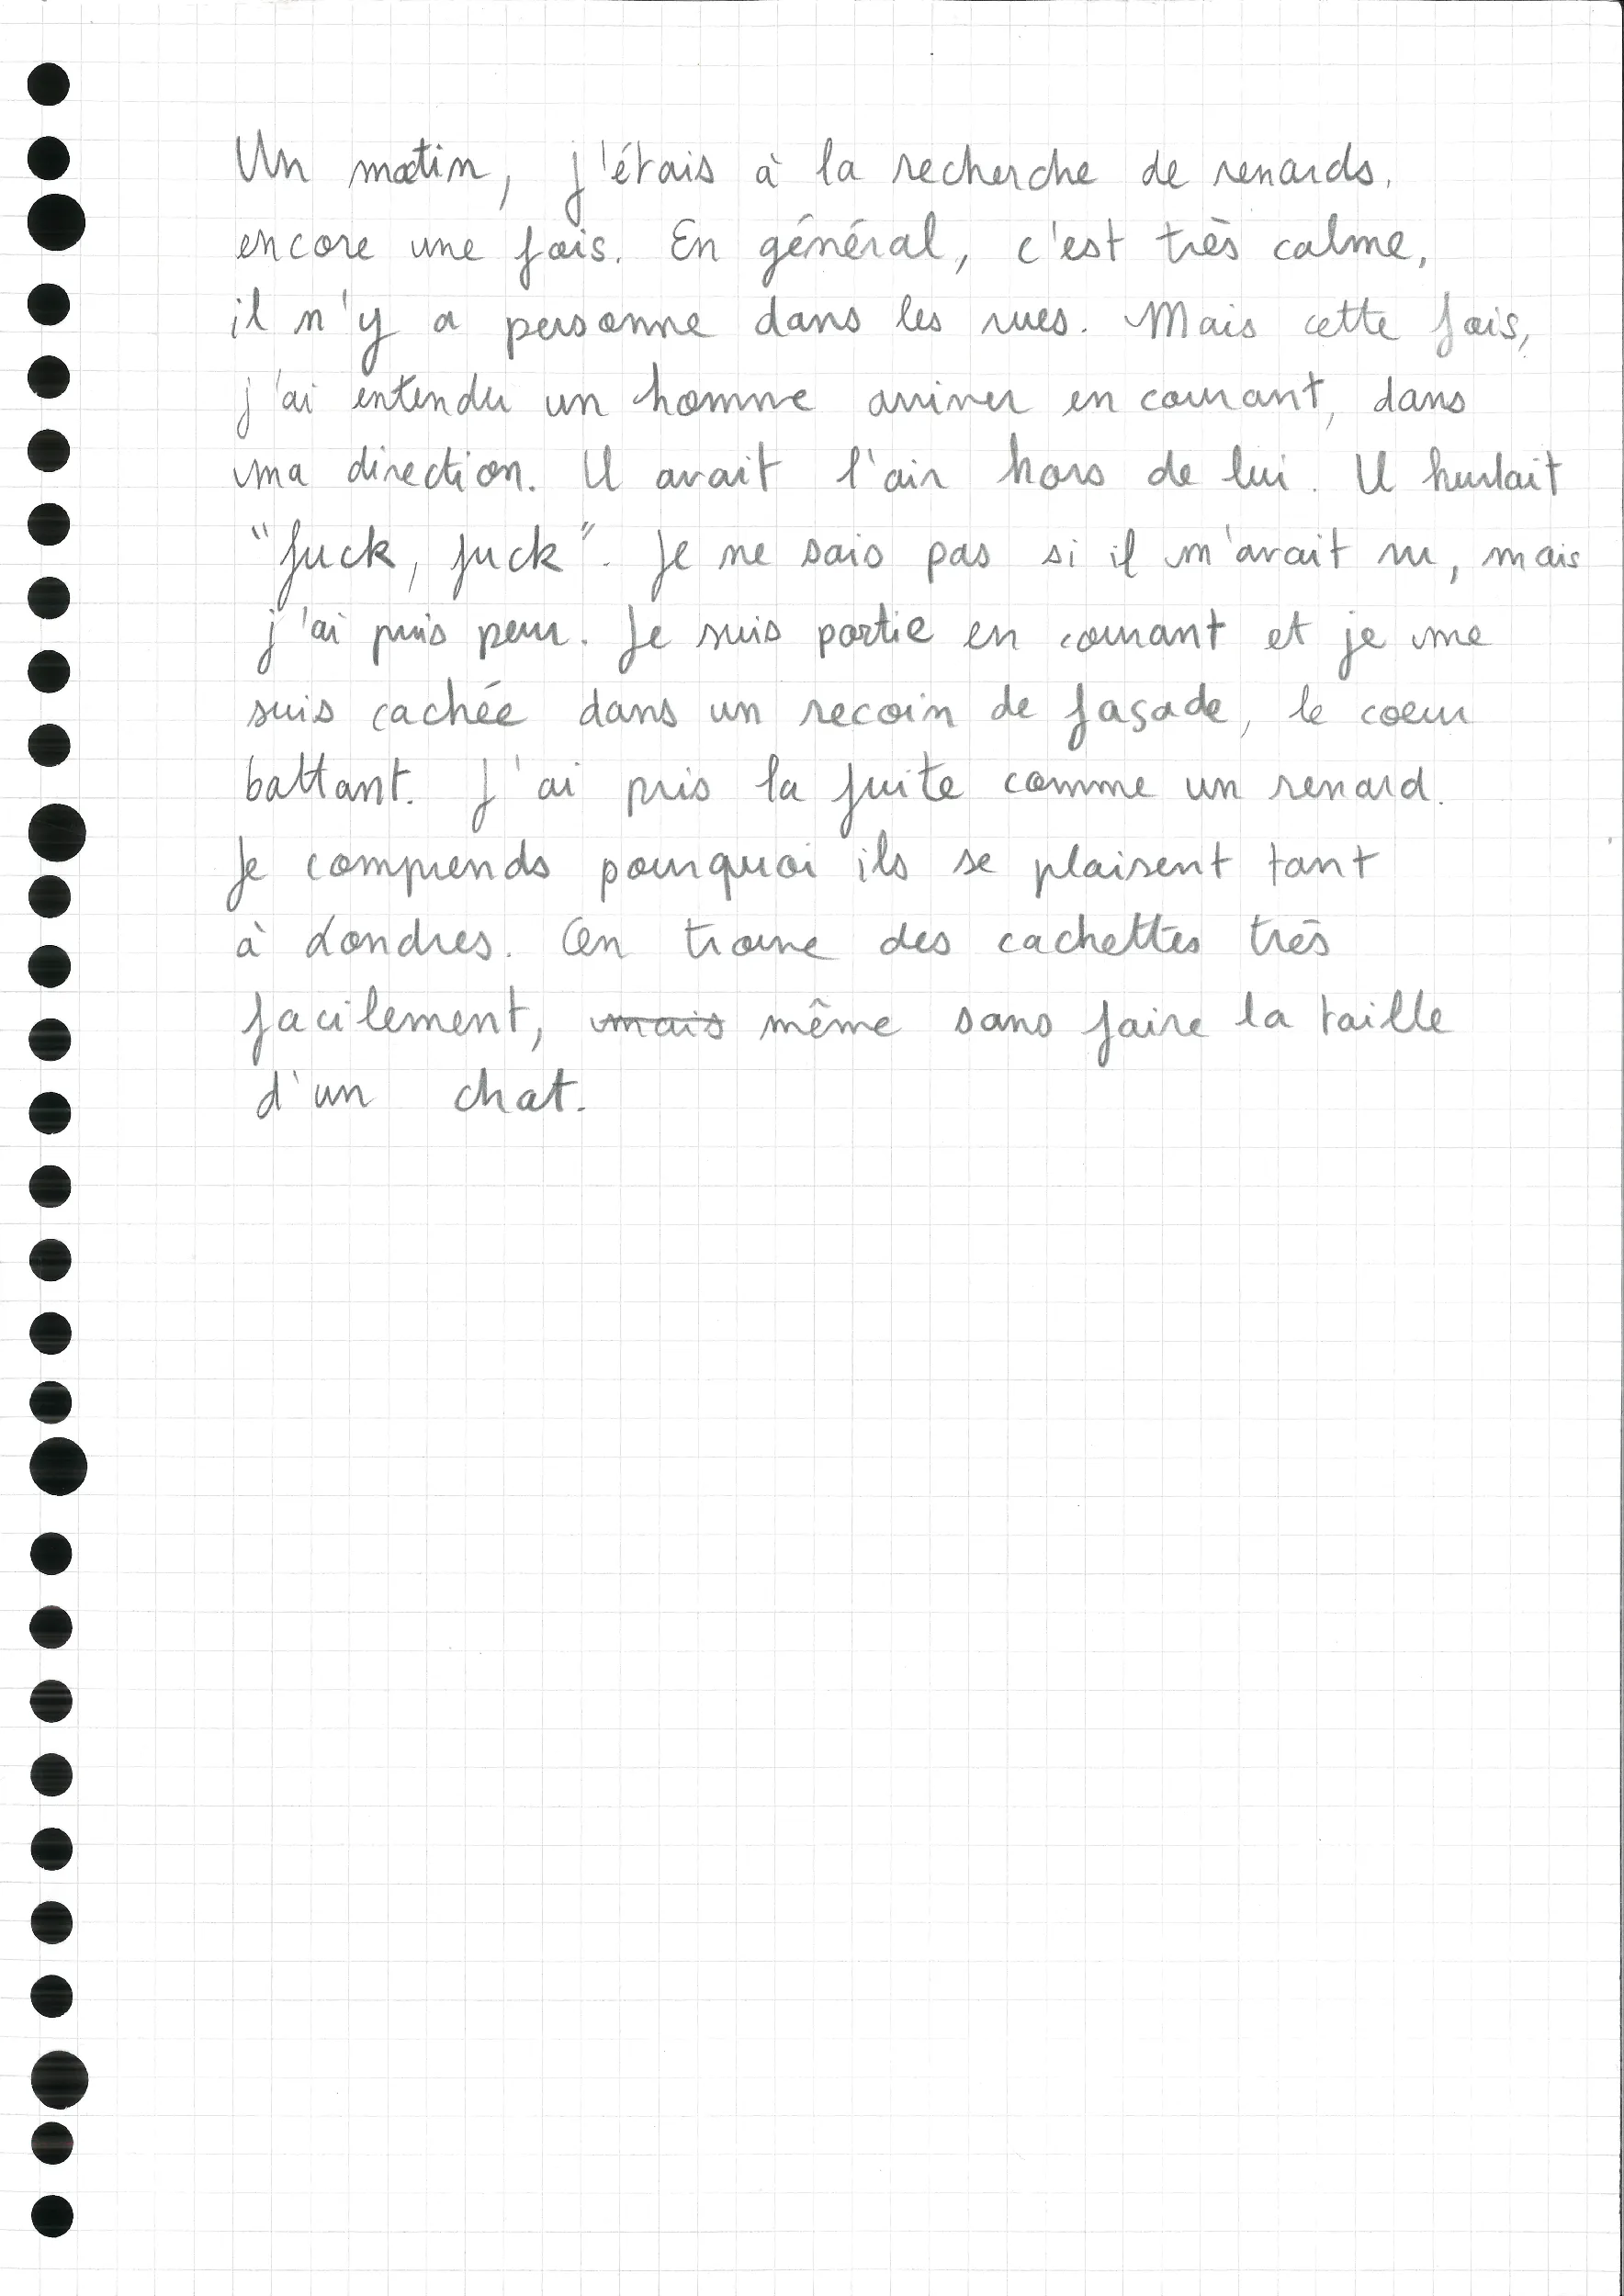 Un matin, j'étais à la recherche de renards.
encore une fois. En général, c'est très calme,
il n'y a personne dans les rues. Mais cette fois,
j'ai entendu un homme arriver en courant, dans
ma direction. Il avait l'air hors de lui. Il hurlait
"fuck, fuck". Je ne sais pas si il m'avait vu, mais
j'ai pris peur. Je suis partie en courant et je me
suis cachée dans un recoin de façade, le coeur
battant. J'ai pris la fuite comme un renard.
Je comprends pourquoi ils se plaisent tant
à Londres. On trouve des cachettes très
facilement, mais même sans faire la taille
d'un chat.